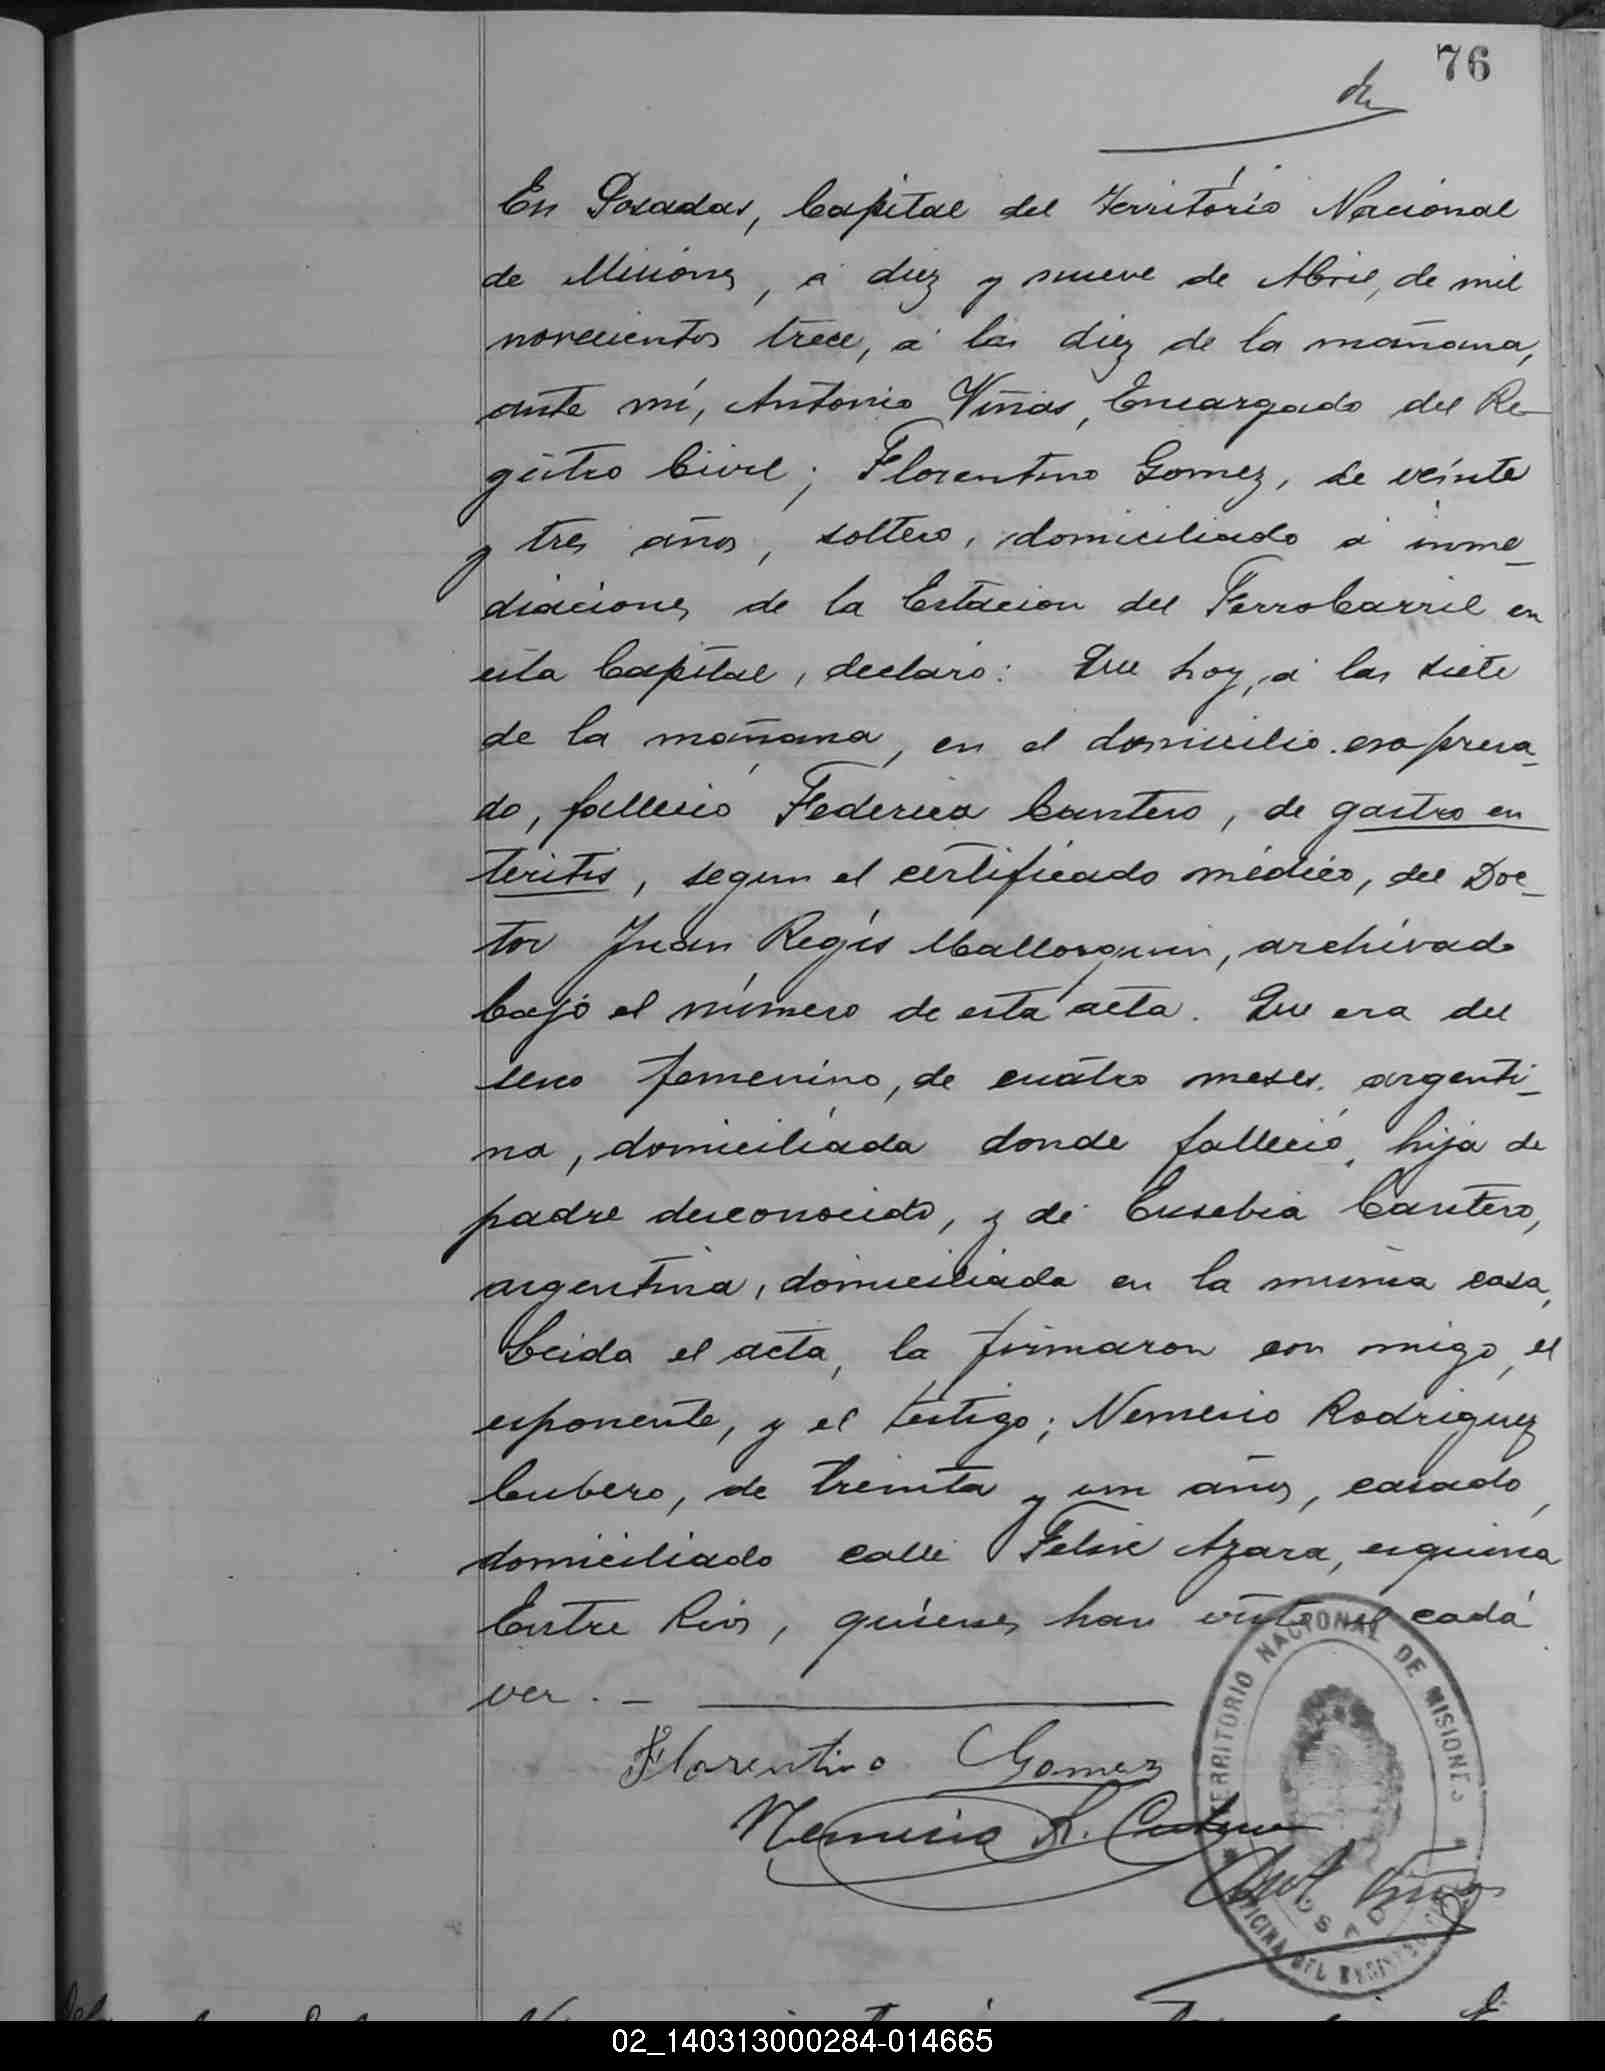 76
En Posadas, Capital del Territorio Nacional
de Misiones, á diez y nueve de Abril, de mil
novecientos trece, á las diez de la mañana,
ante mí, Antonio Viñas, Encargado del Re-
gistro Civil; Florentino Gomez, de veinte
y tres años, soltero, domiciliado á inme-
diaciones de la Estacion del FerroCarril en
esta Capital, declaró: Que hoy, á las siete
de la mañana, en el domicilio expresa-
do, falleció Federica Cantero, de gastro en
teritis, segun el certificado médico, del Doc-
tor Juan Regis Mallorquin, archivado
bajo el número de esta acta. Que era del
sexo femenino, de cuatro meses, argenti-
na, domiciliada donde falleció, hija de
padre desconocido, y de Eusebia Cantero,
argentina, domiciliada en la misma casa,
Leida el acta, la firmaron con migo, el
esponente, y el testigo; Nemesio Rodriguez
Cubero, de treinta y un años, casado,
domiciliado calle Felix Azara, esquina
Entre Rios, quienes han visto el cadá
ver. —
Florentino Gomez
Nemesio R. Cubero
Ant. Viñas
TERRITORIO NACIONAL DE MISIONES
OFICINA DEL REGISTRO
02_140313000284-014665